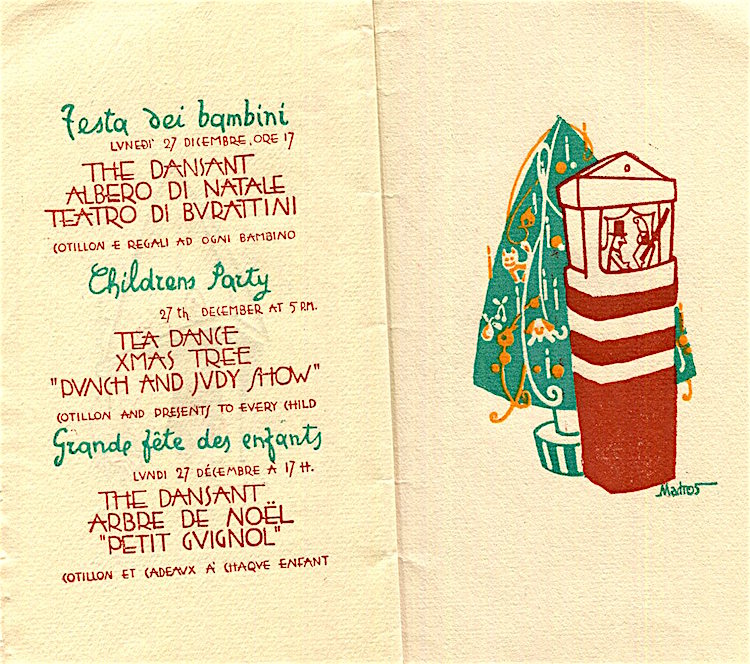 Festa dei bambini
LVNEDI' 27 DICEMBRE, ORE 17
THE DANSANT
ALBERO DI NATALE
TEATRO DI BVRATTINI
COTILLON E REGALI AD OGNI BAMBINO
Childrens Party
27th DECEMBER AT 5 P.M.
TEA DANCE
XMAS TREE
"PVNCH AND JVDY SHOW"
COTILLON AND PRESENTS TO EVERY CHILD
Grande fête des enfants
LVNDI 27 DÉCEMBRE A 17 H.
THE DANSANT
ARBRE DE NOËL
"PETIT GVIGNOL"
COTILLON ET CADEAUX A' CHAQVE ENFANT